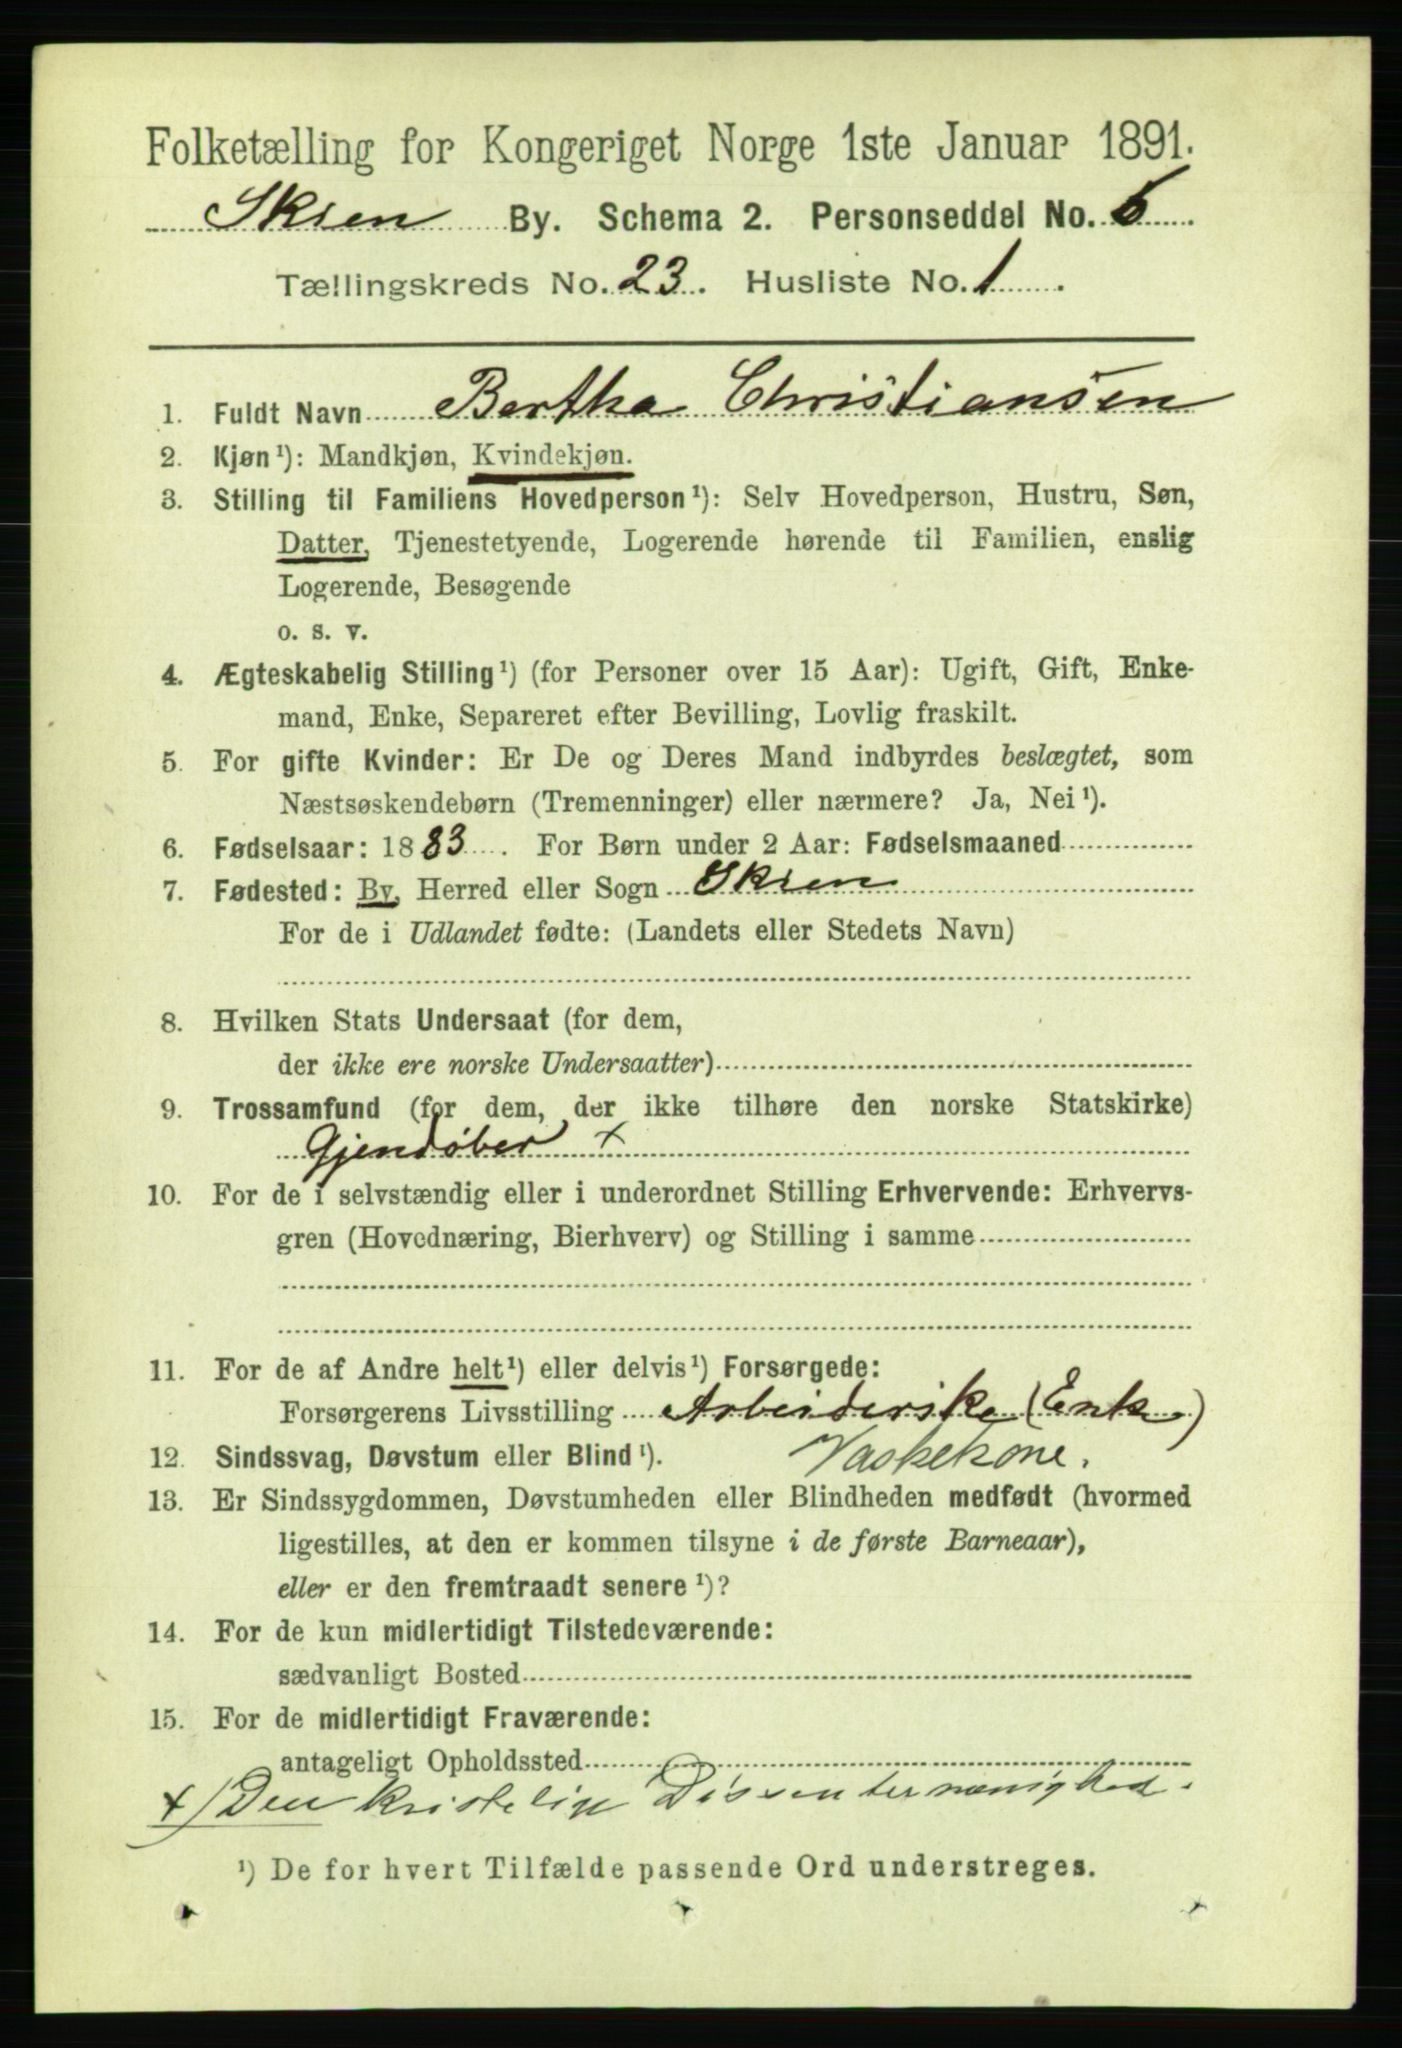 Folketælling for Kongeriget Norge 1ste Januar 1891.
Skien By. Schema 2. Personseddel No. 6
Tællingskreds No. 23. Husliste No. 1.
1. Fuldt Navn Bertha Christiansen
2. Kjøn¹): Mandkjøn, Kvindekjøn.
3. Stilling til Familiens Hovedperson¹): Selv Hovedperson, Hustru, Søn,
Datter, Tjenestetyende, Logerende hørende til Familien, enslig
Logerende, Besøgende
o. s. v.
4. Ægteskabelig Stilling¹) (for Personer over 15 Aar): Ugift, Gift, Enke-
mand, Enke, Separeret efter Bevilling, Lovlig fraskilt.
5. For gifte Kvinder: Er De og Deres Mand indbyrdes beslægtet, som
Næstsøskendebørn (Tremenninger) eller nærmere? Ja, Nei¹).
6. Fødselsaar: 1883. For Børn under 2 Aar: Fødselsmaaned
7. Fødested: By, Herred eller Sogn Skien
For de i Udlandet fødte: (Landets eller Stedets Navn)
8. Hvilken Stats Undersaat (for dem,
der ikke ere norske Undersaatter)
9. Trossamfund (for dem, der ikke tilhøre den norske Statskirke)
Gjendøber x
10. For de i selvstændig eller i underordnet Stilling Erhvervende: Erhvervs-
gren (Hovednæring, Bierhverv) og Stilling i samme
11. For de af Andre helt¹) eller delvis¹) Forsørgede:
Forsørgerens Livsstilling Arbeiderske (Enke)
12. Sindssvag, Døvstum eller Blind¹). Vaskekone.
13. Er Sindssygdommen, Døvstumheden eller Blindheden medfødt (hvormed
ligestilles, at den er kommen tilsyne i de første Barneaar),
eller er den fremtraadt senere¹)?
14. For de kun midlertidigt Tilstedeværende:
sædvanligt Bosted
15. For de midlertidigt Fraværende:
antageligt Opholdssted
x) Den kristelige Dissentermenighed.
¹) De for hvert Tilfælde passende Ord understreges.